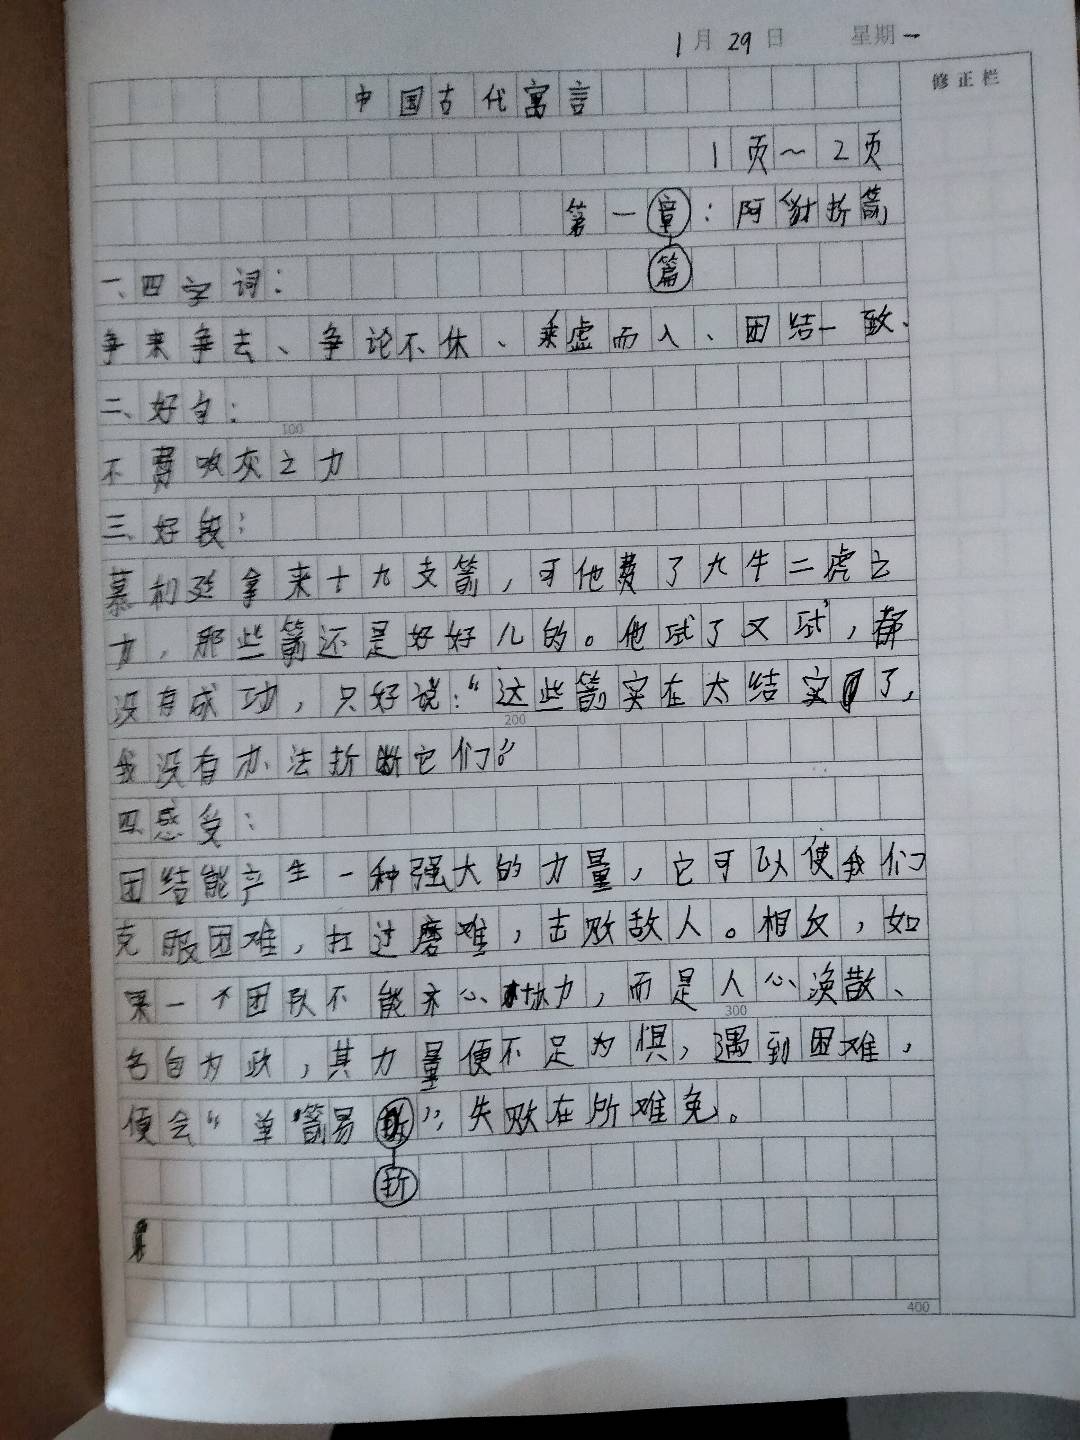 1月29日 星期一
修正栏
中国古代寓言
1页~2页
第一章:阿豺折箭
篇
一、四字词:
争来争去、争论不休、乘虚而入、团结一致、
二、好句:
100
不费吹灰之力
三、好段:
慕利延拿来十九支箭,可他费了九牛二虎之
力,那些箭还是好好儿的。他试了又试,都
没有成功,只好说:“这些箭实在太结实了,
200
我没有办法折断它们。”
四、感受:
团结能产生一种强大的力量,它可以使我们
克服困难,扛过磨难,击败敌人。相反,如
果一个团队不能齐心协力,而是人心涣散、
300
各自为政,其力量便不足为惧,遇到困难,
便会“单箭易折”,失败在所难免。
折
400